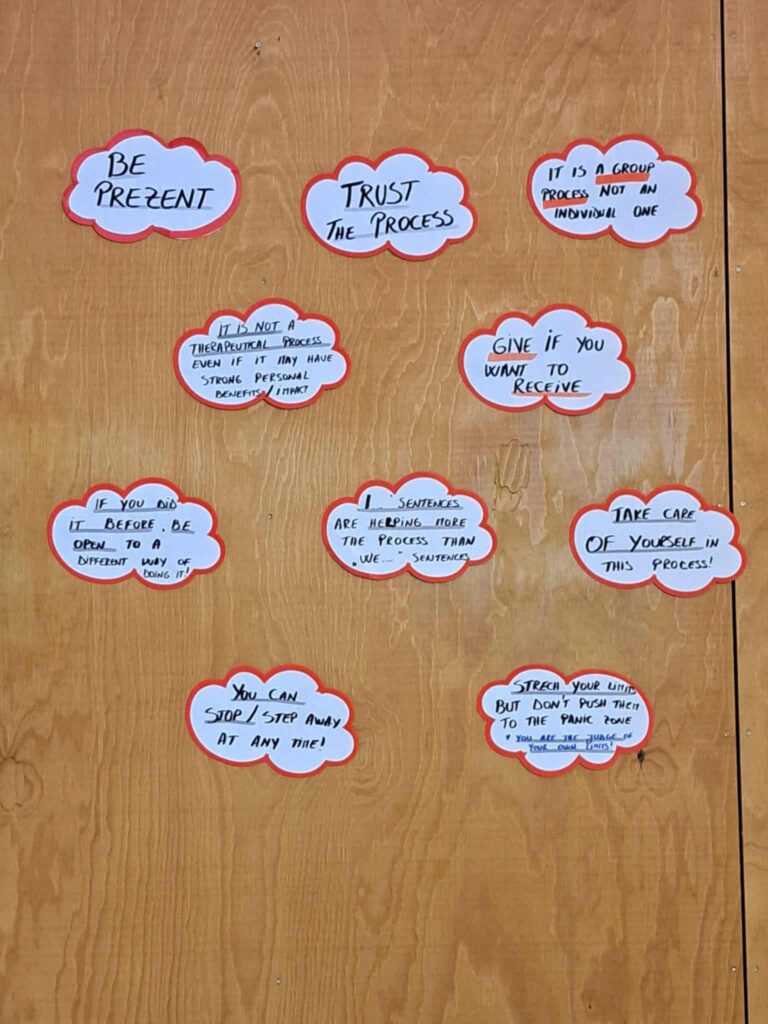 BE
PREZENT
TRUST
THE PROCESS
IT IS A GROUP
PROCESS NOT AN
INDIVIDUAL ONE
IT IS NOT A
THERAPEUTICAL PROCESS
EVEN IF IT MAY HAVE
STRONG PERSONAL
BENEFITS/IMPACT
GIVE IF YOU
WANT TO
RECEIVE
IF YOU DID
IT BEFORE, BE
OPEN TO A
DIFFERENT WAY OF
DOING IT!
I..." SENTENCES
ARE HELPING MORE
THE PROCESS THAN
"WE...." SENTENCES
TAKE CARE
OF YOURSELF IN
THIS PROCESS!
YOU CAN
STOP/STEP AWAY
AT ANY TIME!
STRECH YOUR LIMITS
BUT DON'T PUSH THEM
TO THE PANIC ZONE
* YOU ARE THE JUDGE OF
YOUR OWN LIMITS!